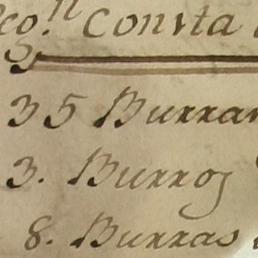 eo.n Consta
35 Burran
3. Burros
8. Burras